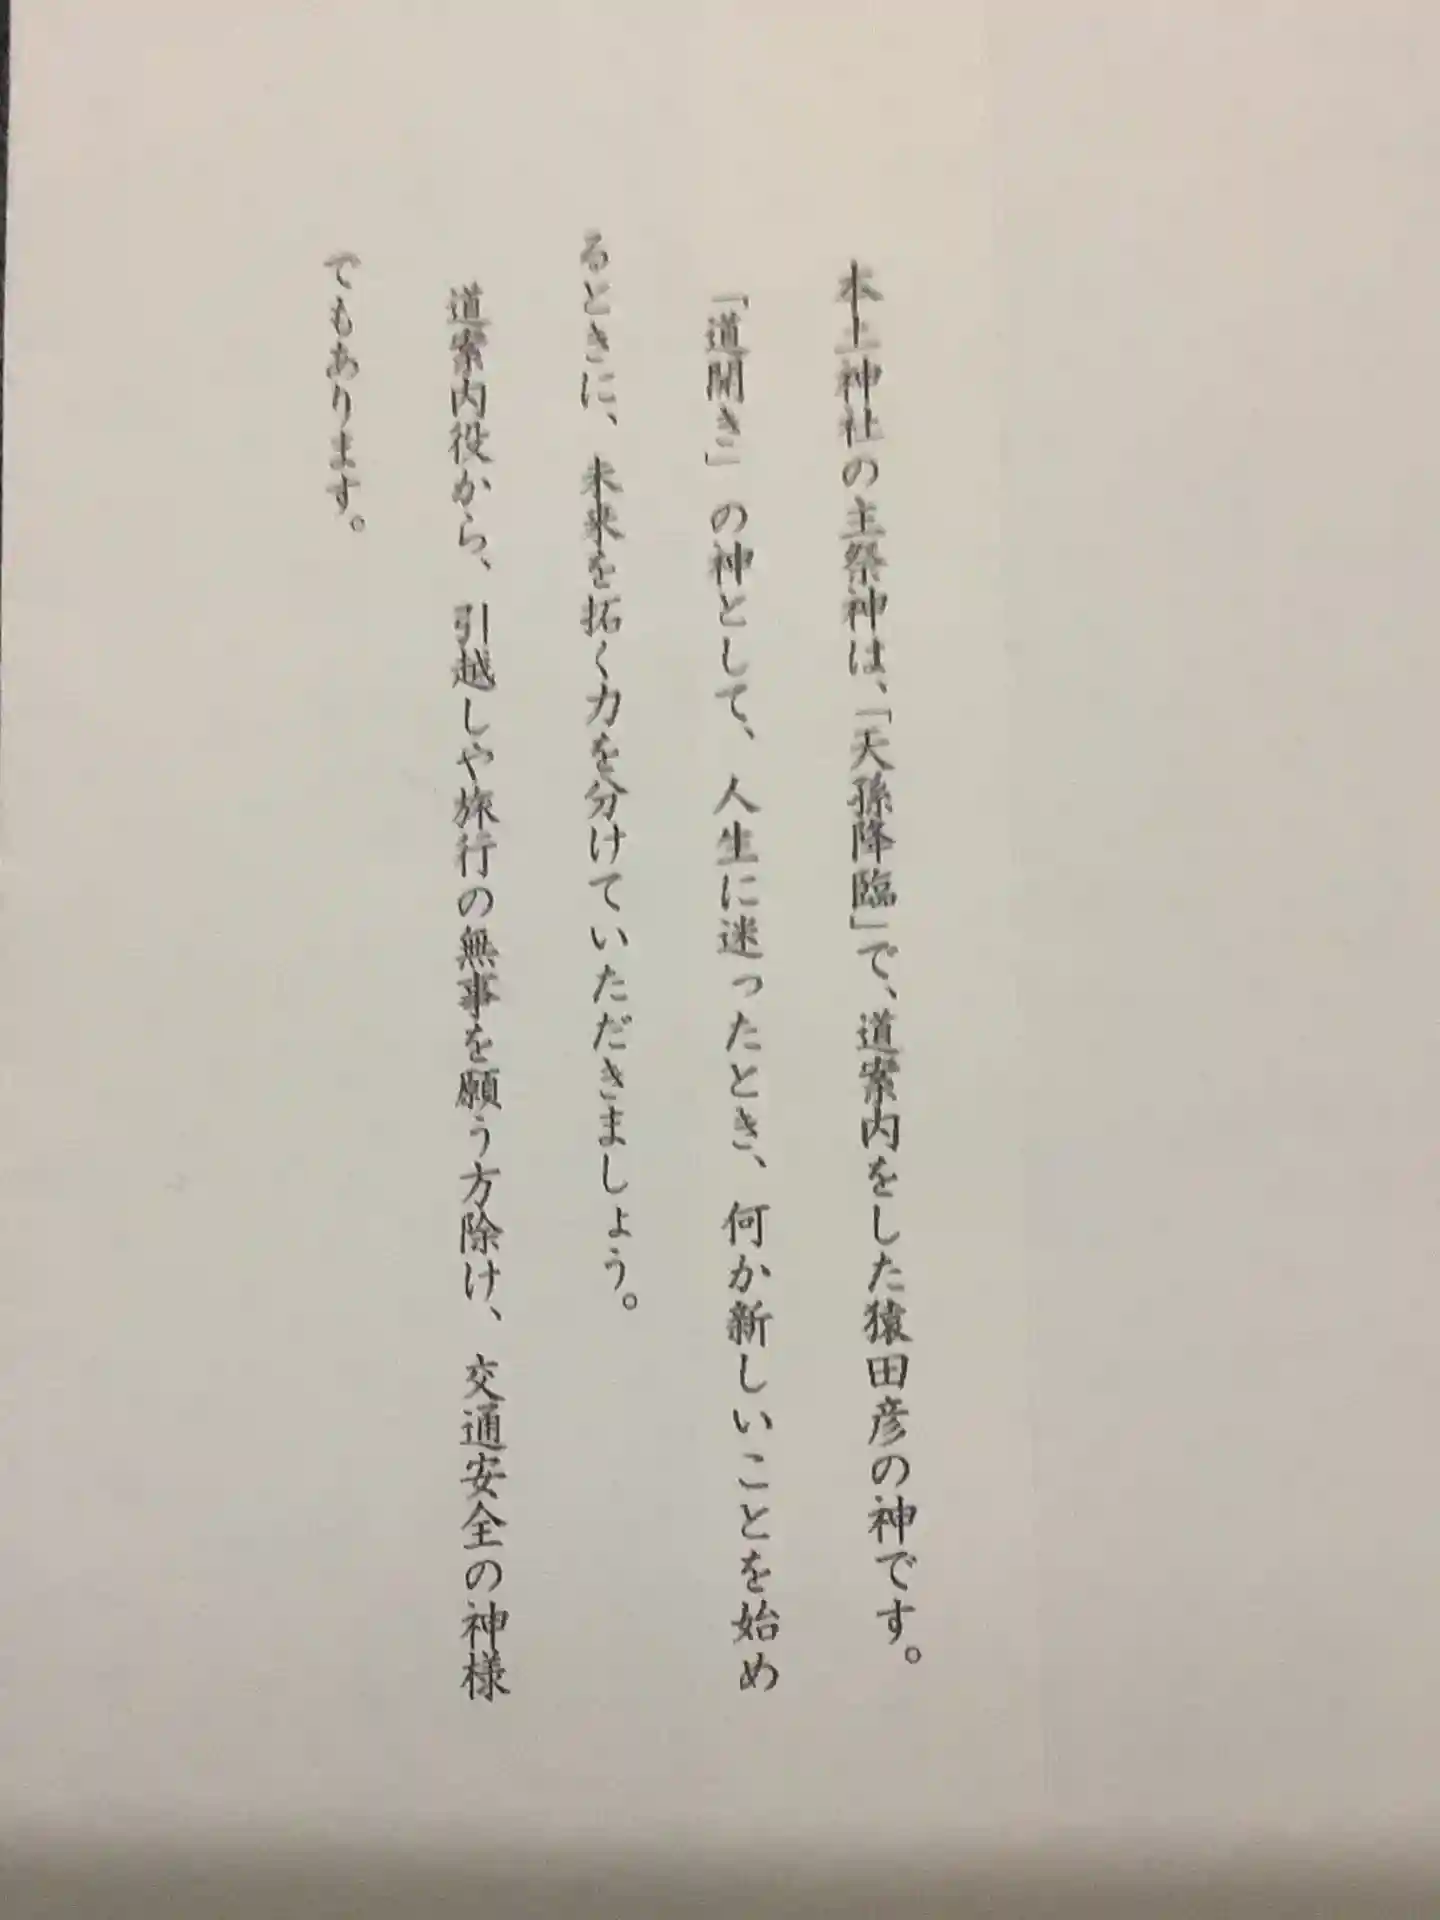 本土神社の主祭神は、「天孫降臨」で、道案内をした猿田彦の神です。
「道開き」の神として、人生に迷ったとき、何か新しいことを始め
るときに、未来を拓く力を分けていただきましょう。
道案内役から、引越しや旅行の無事を願う方除け、交通安全の神様
でもあります。